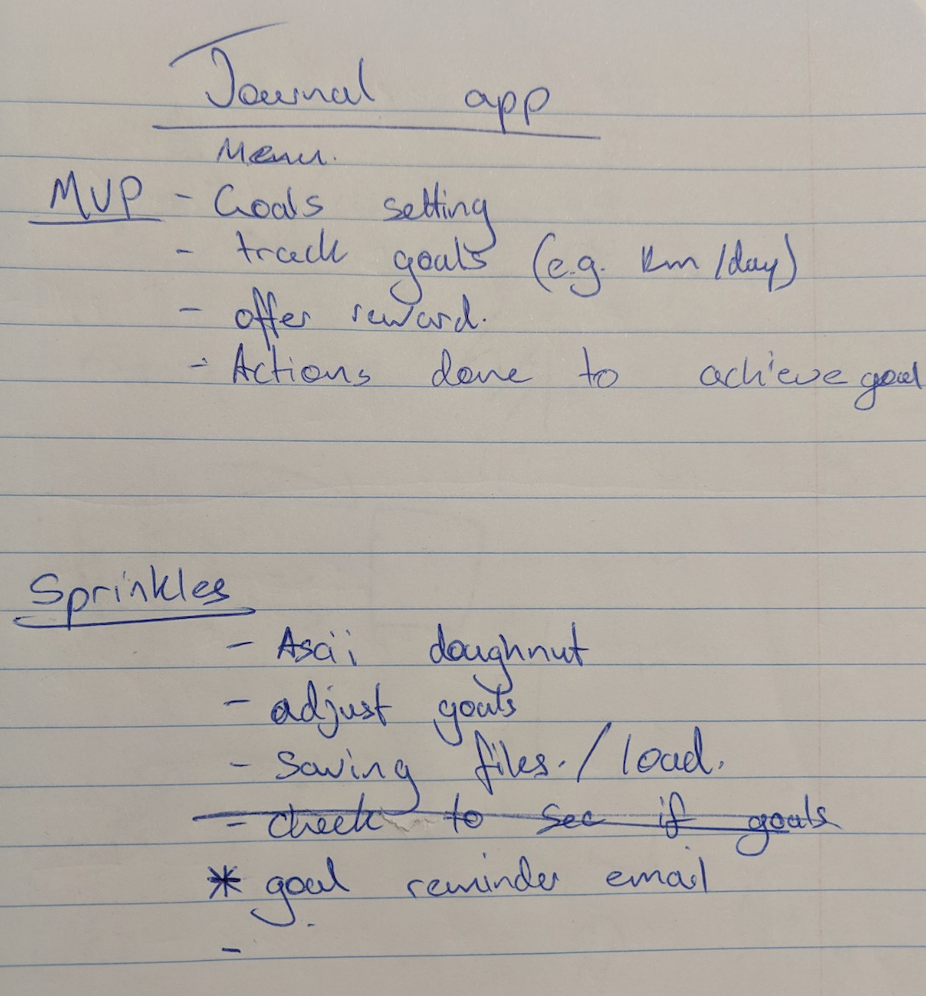 Journal app
Menu.
MVP - Goals setting
- track goals (e.g. km/day)
- offer reward.
- Actions done to achieve goal
Sprinkles
- Ascii doughnut
- adjust goals
- Saving files./load.
- check to see if goals
* goal reminder email
-